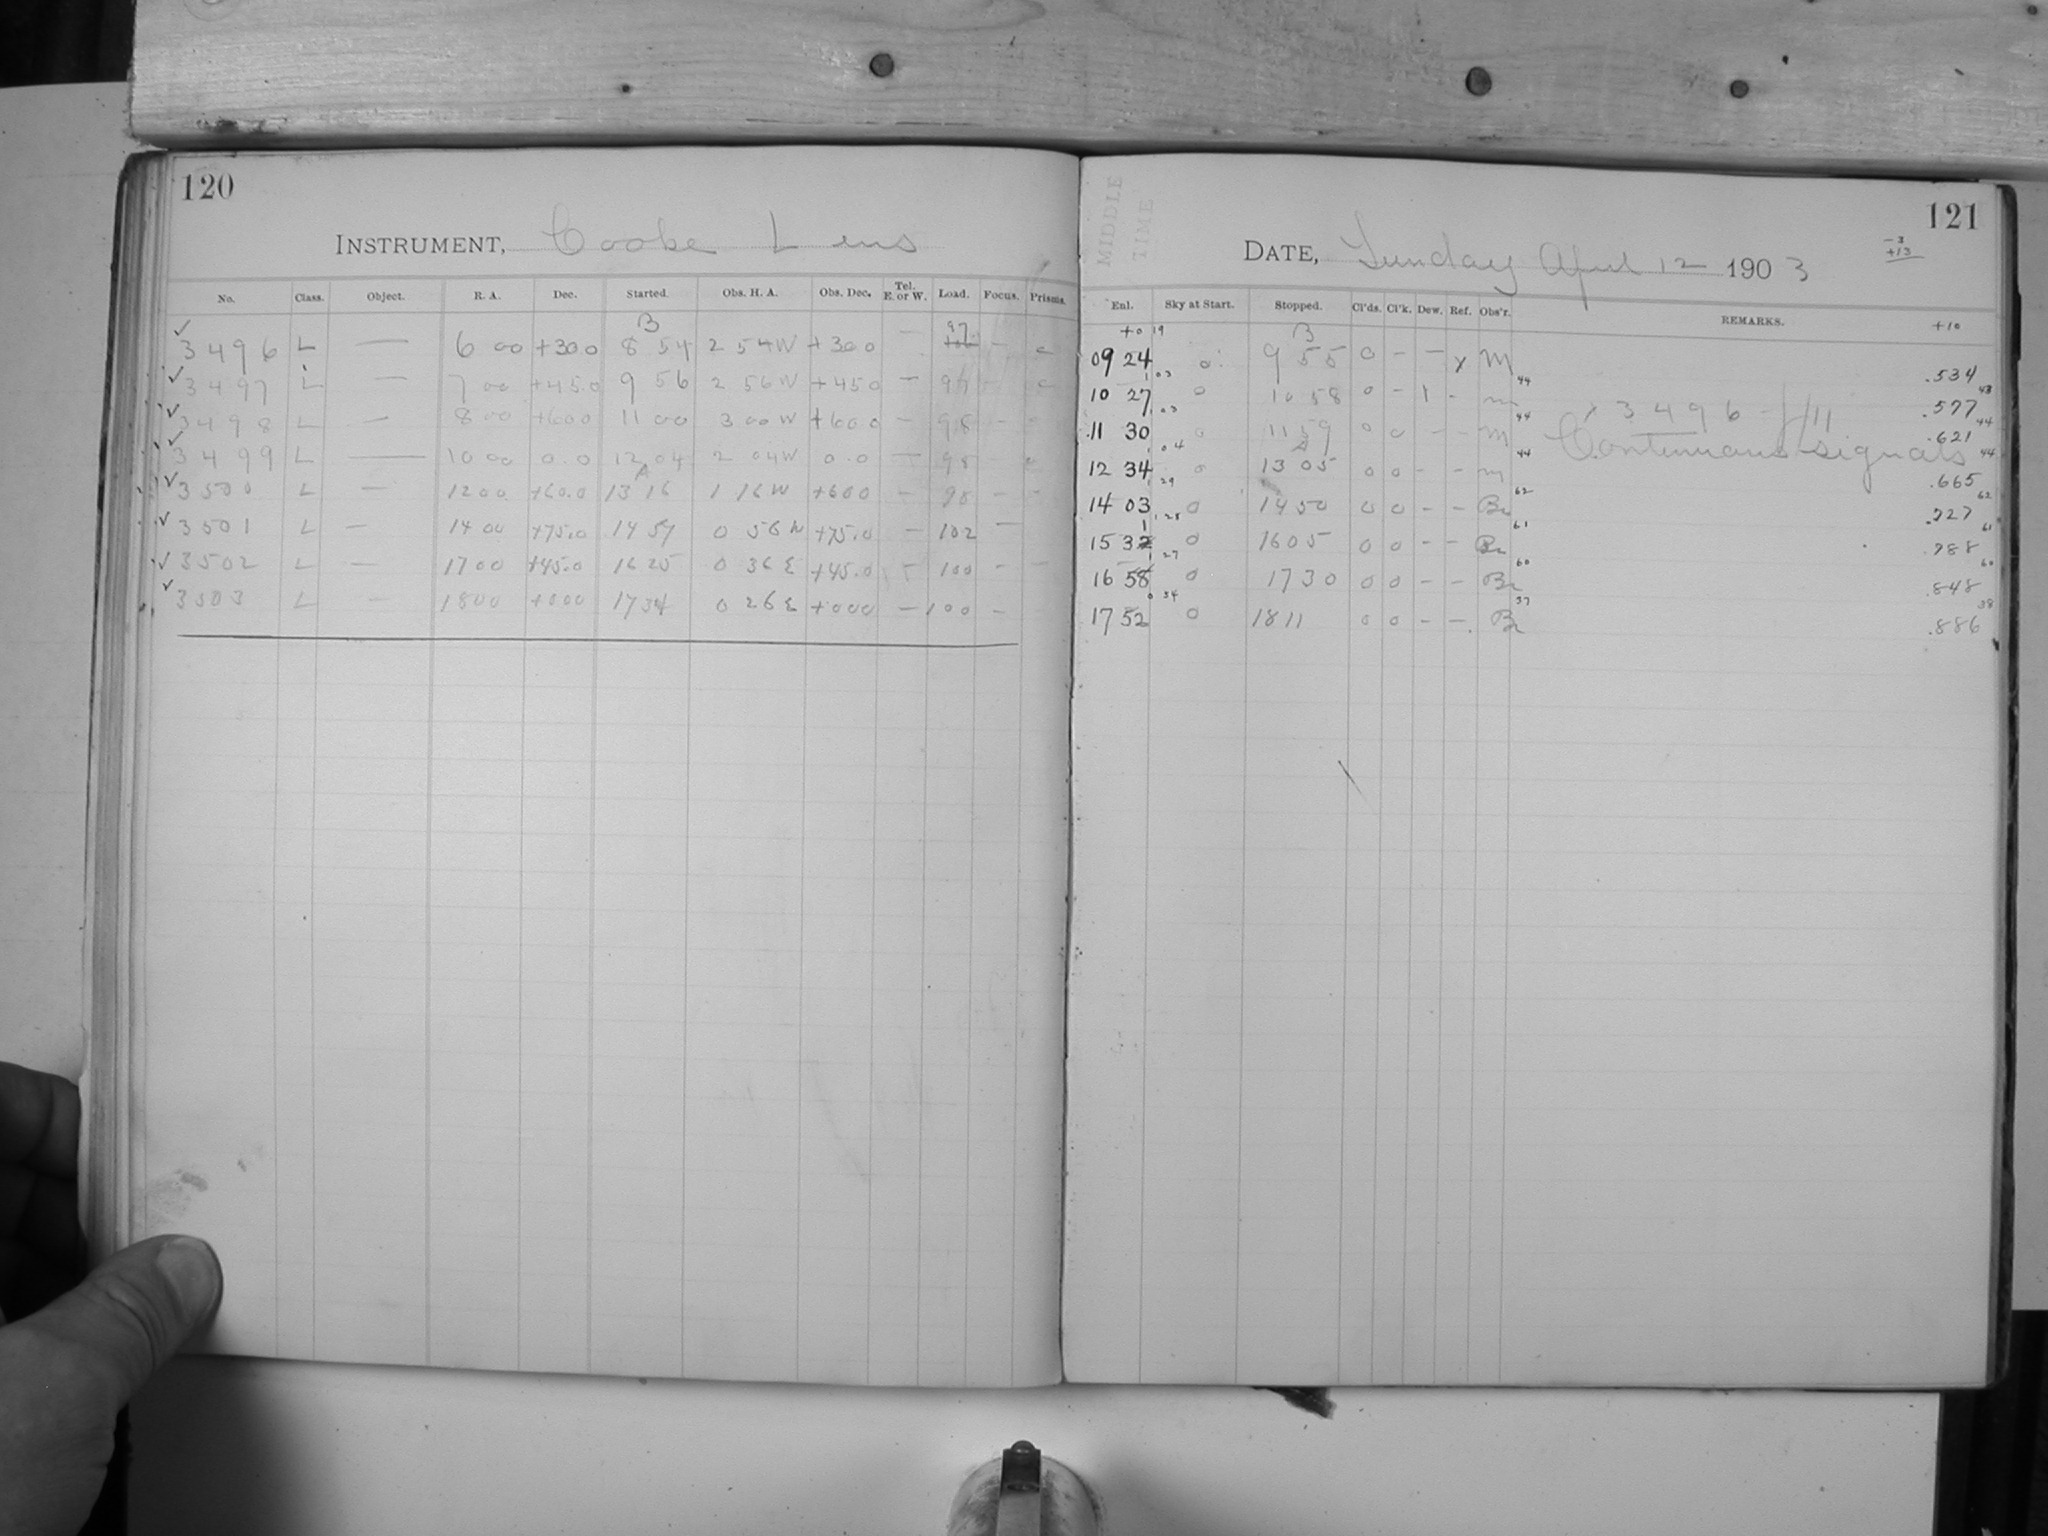 120
INSTRUMENT, Cooke Lens
No. Class. Object. R. A. Dec. Started. Obs. H. A. Obs. Dec. Tel. E. or W. Load. Focus. Prisms.
B 97
✓ 3496 L — 6 00 +30 0 8 54 2 54 W +30 0 — –
✓ 3497 L — 7 00 +45.0 9 56 2 56 W +45 0 — 97
✓ 3498 L — 8 00 +60 0 11 00 3 00 W +60 0 — 98 –
✓ 3499 L — 10 00 0.0 12 04 2 04 W 0.0 — 98 –
A
✓ 3500 L — 12 00 +60.0 13 16 1 16 W +60 0 — 98 – –
✓ 3501 L — 14 00 +75.0 14 59 0 56 W +75.0 — 102 —
✓ 3502 L — 17 00 +45.0 16 25 0 36 E +45.0 — 100 – –
✓ 3503 L — 18 00 +00 0 17 34 0 26 E +00 0 — 100 –
MIDDLE
TIME
121
–3
+13
DATE, Sunday April 12 1903
Enl. Sky at Start. Stopped. Cl'ds. Cl'k. Dew. Ref. Obs'r. REMARKS.
+0 19 B +10
09 24 0 9 55 0 – – x M .534
1 03 44 43
10 27 0 10 58 0 – 1 - m x 3496 f/11 .577
1 03 44 44
11 30 0 11 59 0 0 – – M Continuous signals .621
1 04 A 44 44
12 34 0 13 05 0 0 – – m .665
1 29 62 62
14 03 0 14 50 0 0 – – Br .727
1 28 61 61
15 32 0 16 05 0 0 – – Br .788
1 27 60 60
16 58 0 17 30 0 0 – – Br .848
0 54 37 38
17 52 0 18 11 0 0 – – Br .886